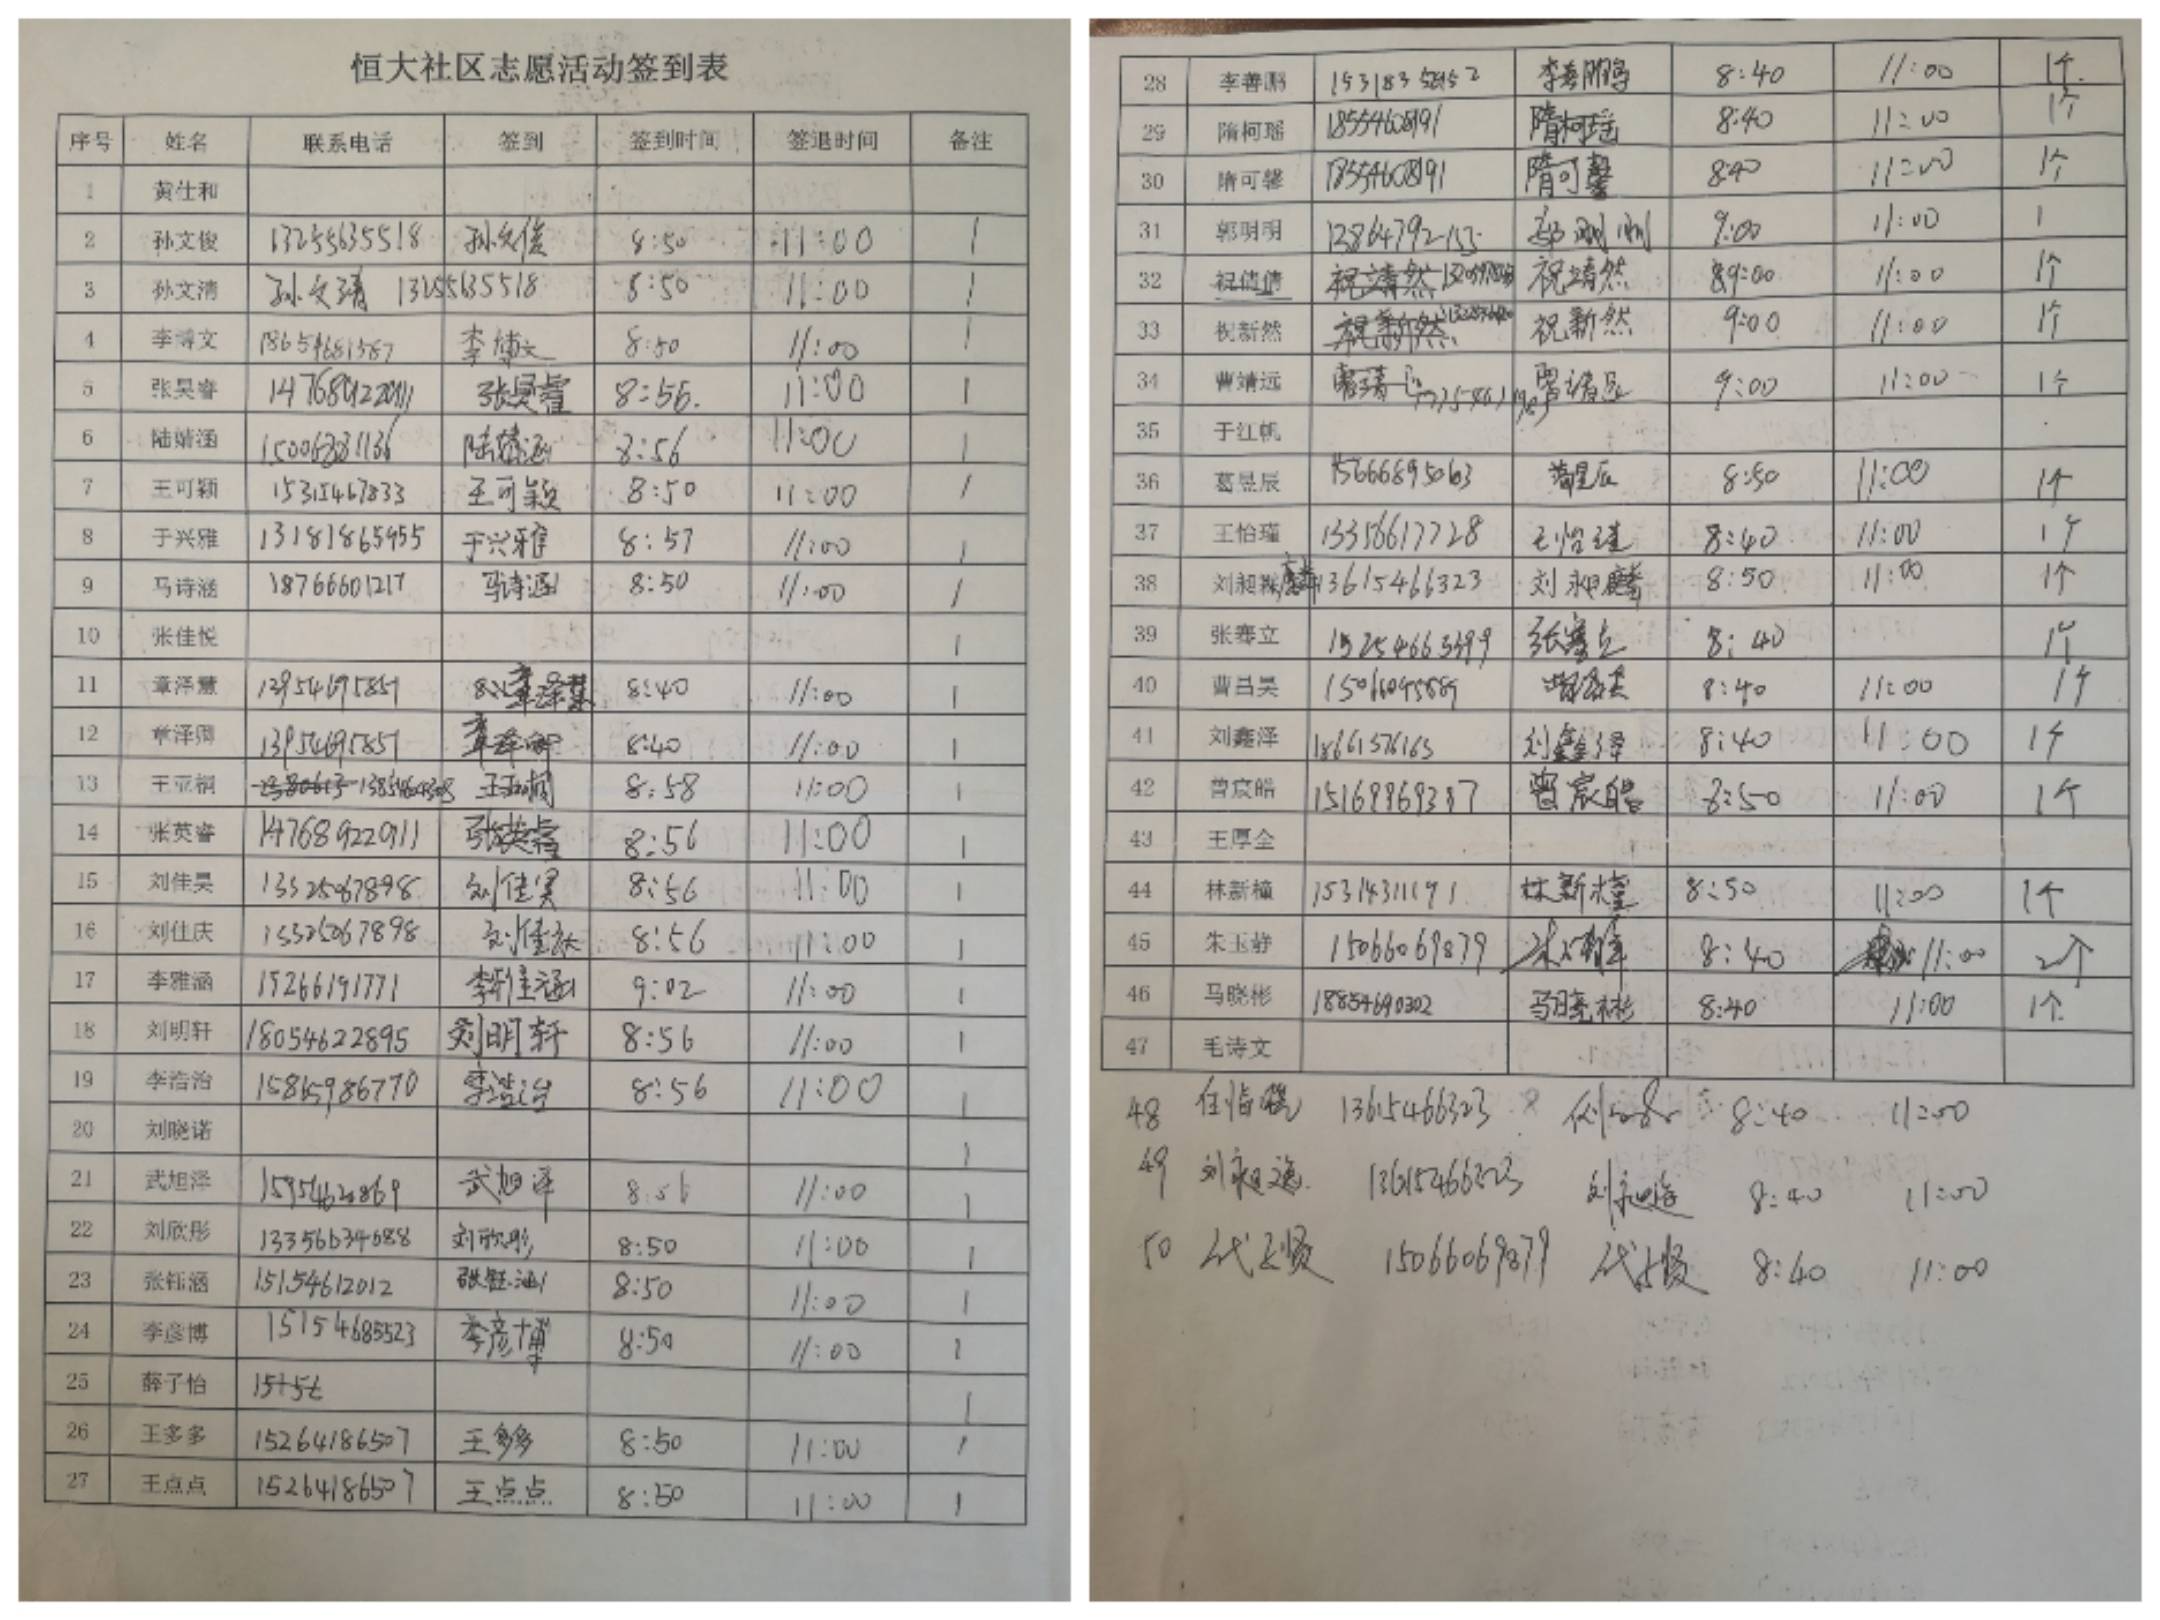 恒大社区志愿活动签到表
序号 姓名 联系电话 签到 签到时间 签退时间 备注
1 黄仕和
2 孙文俊 13255635518 孙文俊 8:50 11:00 1
3 孙文清 孙文清 13255635518 8:50 11:00 1
4 李博文 18654681587 李博文 8:50 11:00 1
5 张昊睿 14768922911 张昊睿 8:56. 11:00 1
6 陆婧涵 陆婧涵 8:56 11:00 1
7 王可颖 15315467833 王可颖 8:50 11:00 1
8 于兴雅 13181865955 于兴雅 8:57 11:00 1
9 马诗涵 18766601217 马诗涵 8:50 11:00 1
10 张佳悦 1
11 章泽慧 13954695857 章泽慧 8:40 11:00 1
12 章泽卿 13954695857 章泽卿 8:40 11:00 1
13 王亚桐 王亚桐 8:58 11:00 1
14 张英睿 14768922911 张英睿 8:56 11:00 1
15 刘佳昊 13325067898 刘佳昊 8:56 11:00 1
16 刘佳庆 13325067898 刘佳庆 8:56 11:00 1
17 李雅涵 15266191771 李雅涵 9:02 11:00 1
18 刘明轩 18054622895 刘明轩 8:56 11:00 1
19 李浩治 15865986770 李浩治 8:56 11:00 1
20 刘晓诺 1
21 武旭泽 15954620869 武旭泽 8:56 11:00 1
22 刘欣彤 13356634688 刘欣彤 8:50 11:00 1
23 张钰涵 15154612012 张钰涵 8:50 11:00 1
24 李彦博 15154685523 李彦博 8:50 11:00 1
25 薛子怡 1
26 王多多 15264186507 王多多 8:50 11:00 1
27 王点点 15264186507 王点点 8:50 11:00 1
28 李善鹏 李善鹏 8:40 11:00 1个.
29 隋柯瑶 18554608191 隋柯瑶 8:40 11:00 1个
30 隋可馨 18554608191 隋可馨 8:40 11:00 1个
31 郭明明 郭明明 9:00 11:00 1
32 祝倩倩 祝靖然 祝靖然 9:00 11:00 1个
33 祝新然 祝新然 祝新然 9:00 11:00 1个
34 曹靖远 曹靖远 9:00 11:00 1个
35 于江帆
36 葛昱辰 15666895063 葛昱辰 8:50 11:00 1个
37 王怡瑾 13356617728 王怡瑾 8:40 11:00 1个
38 刘昶麟 13615466323 刘昶麟 8:50 11:00 1个
39 张骞立 15254663399 张骞立 8:40 1个
40 曹吕昊 曹吕昊 8:40 11:00 1个
41 刘鑫泽 18661576165 刘鑫泽 8:40 11:00 1个
42 曾宸皓 15169869387 曾宸皓 8:50 11:00 1个
43 王厚全
44 林新橦 15314311191 林新橦 8:50 11:00 1个
45 朱玉静 15066069879 朱玉静 8:40 11:00 2个
46 马晓彬 18854690302 马晓彬 8:40 11:00 1个
47 毛诗文
48 13615466323 8:40 11:00
49 刘昶逸 13615466323 刘昶逸 8:40 11:00
50 代玉贤 15066069879 代玉贤 8:40 11:00